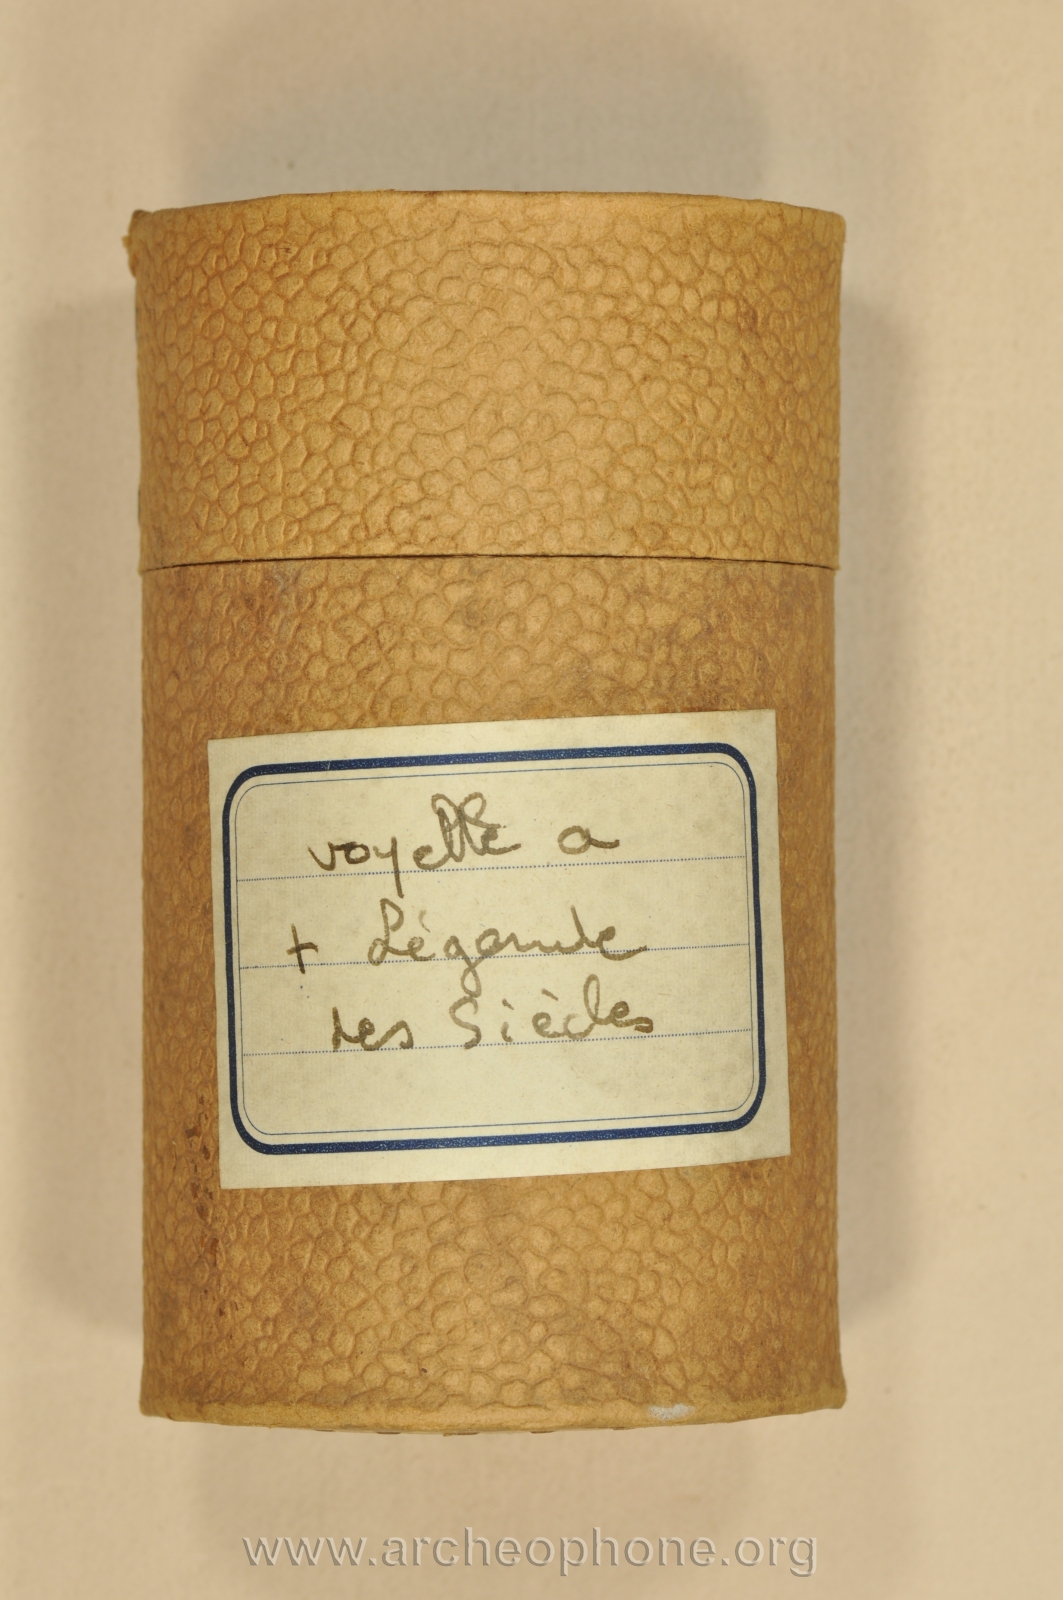 voyelle a
+ Légende
des Siècles
www.archeophone.org